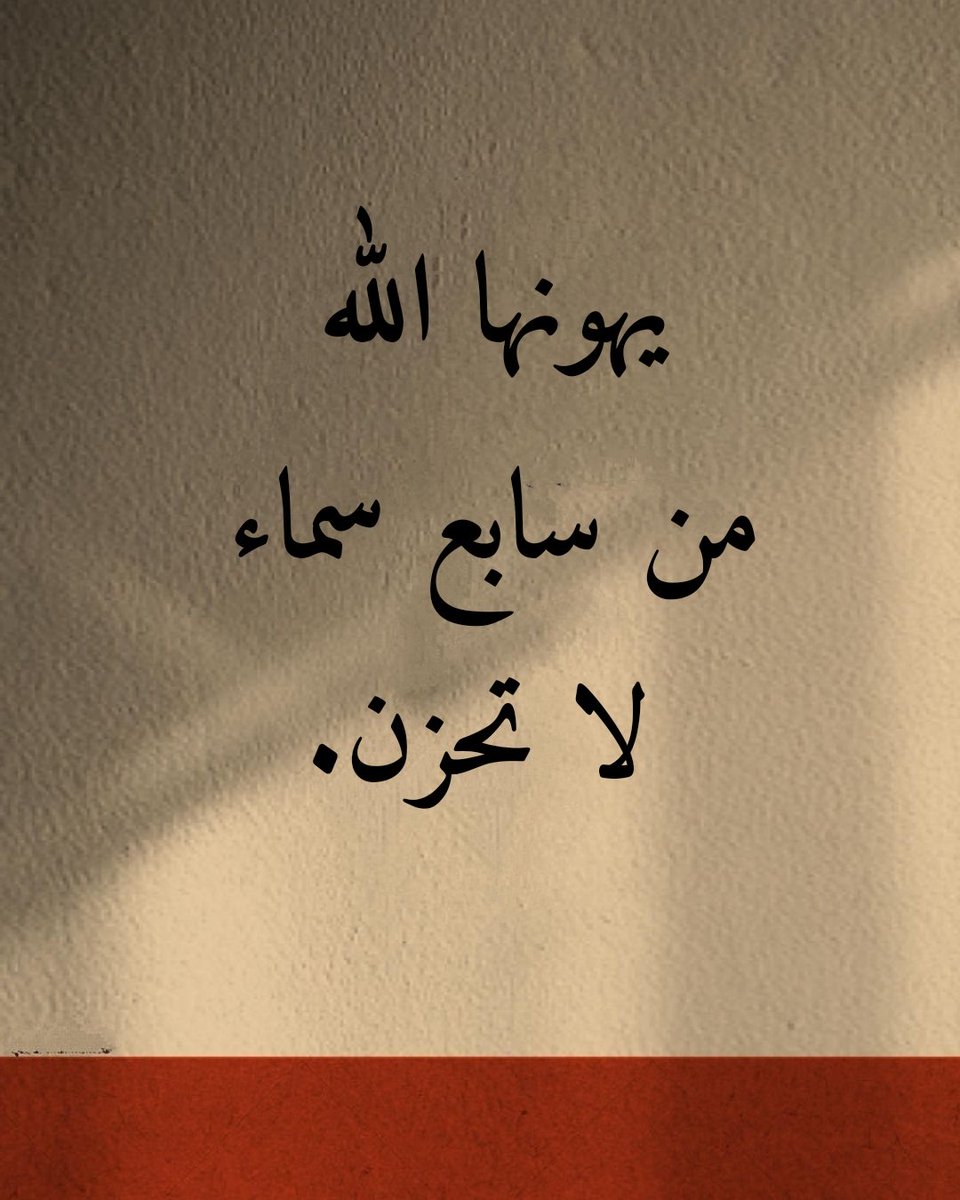 يهونها الله
من سابع سماء
لا تحزن.